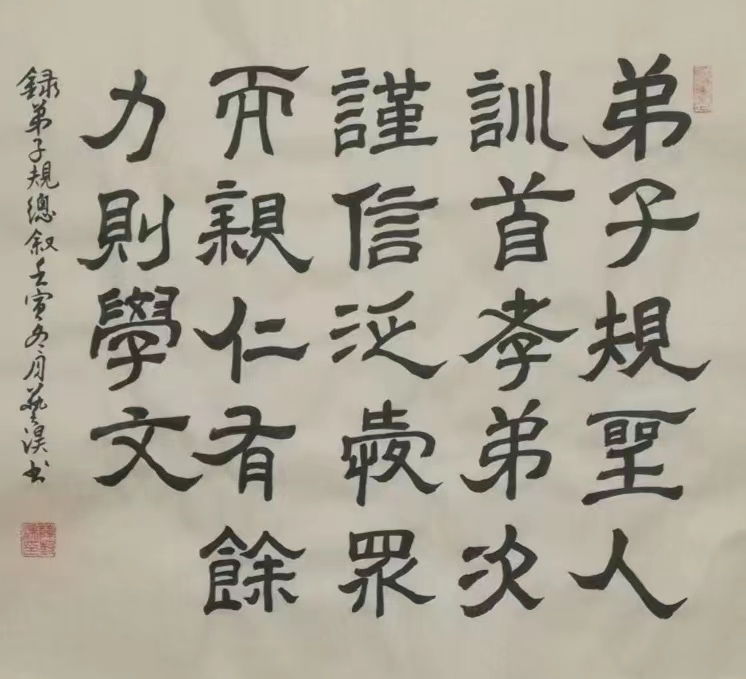 弟子規聖人
訓首孝弟次
謹信泛愛眾
而親仁有餘
力則學文
錄弟子規總叙壬寅冬月藝淏书